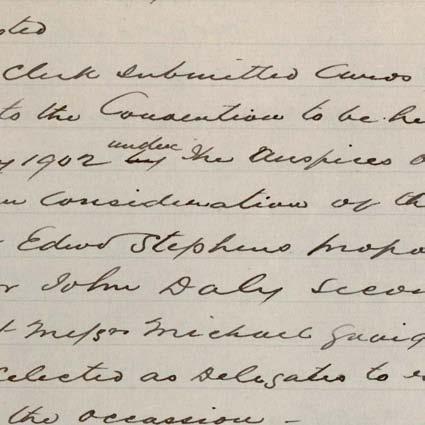 sted
Clerk submitted
to the Convention to be he
y 1902 under by the Auspices o
n consideration of th
Edwd Stephens propo
r John Daly secon
t Messrs Michael
elected as Delegates to
the occassion -